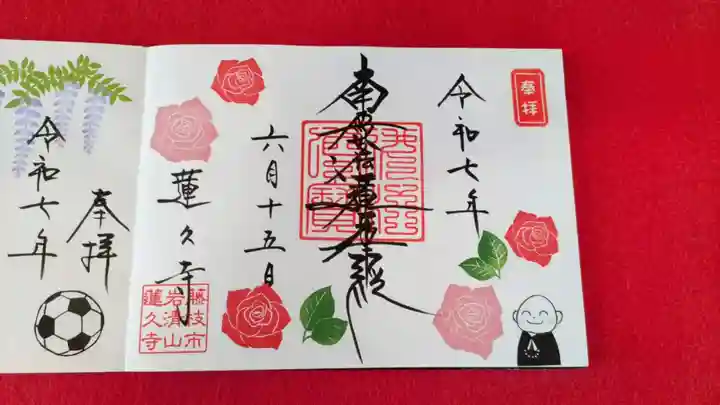 奉拝
令和七年
南無妙法蓮華経
六月十五日
蓮久寺
藤枝市
岩清山
蓮久寺
奉拝
令和七年